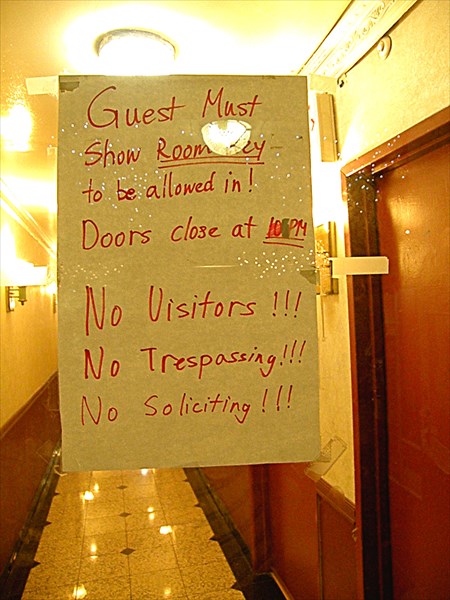 Guest Must
Show Room Key
to be allowed in!
Doors close at 10 PM
No Visitors !!!
No Trespassing!!!
No Soliciting !!!